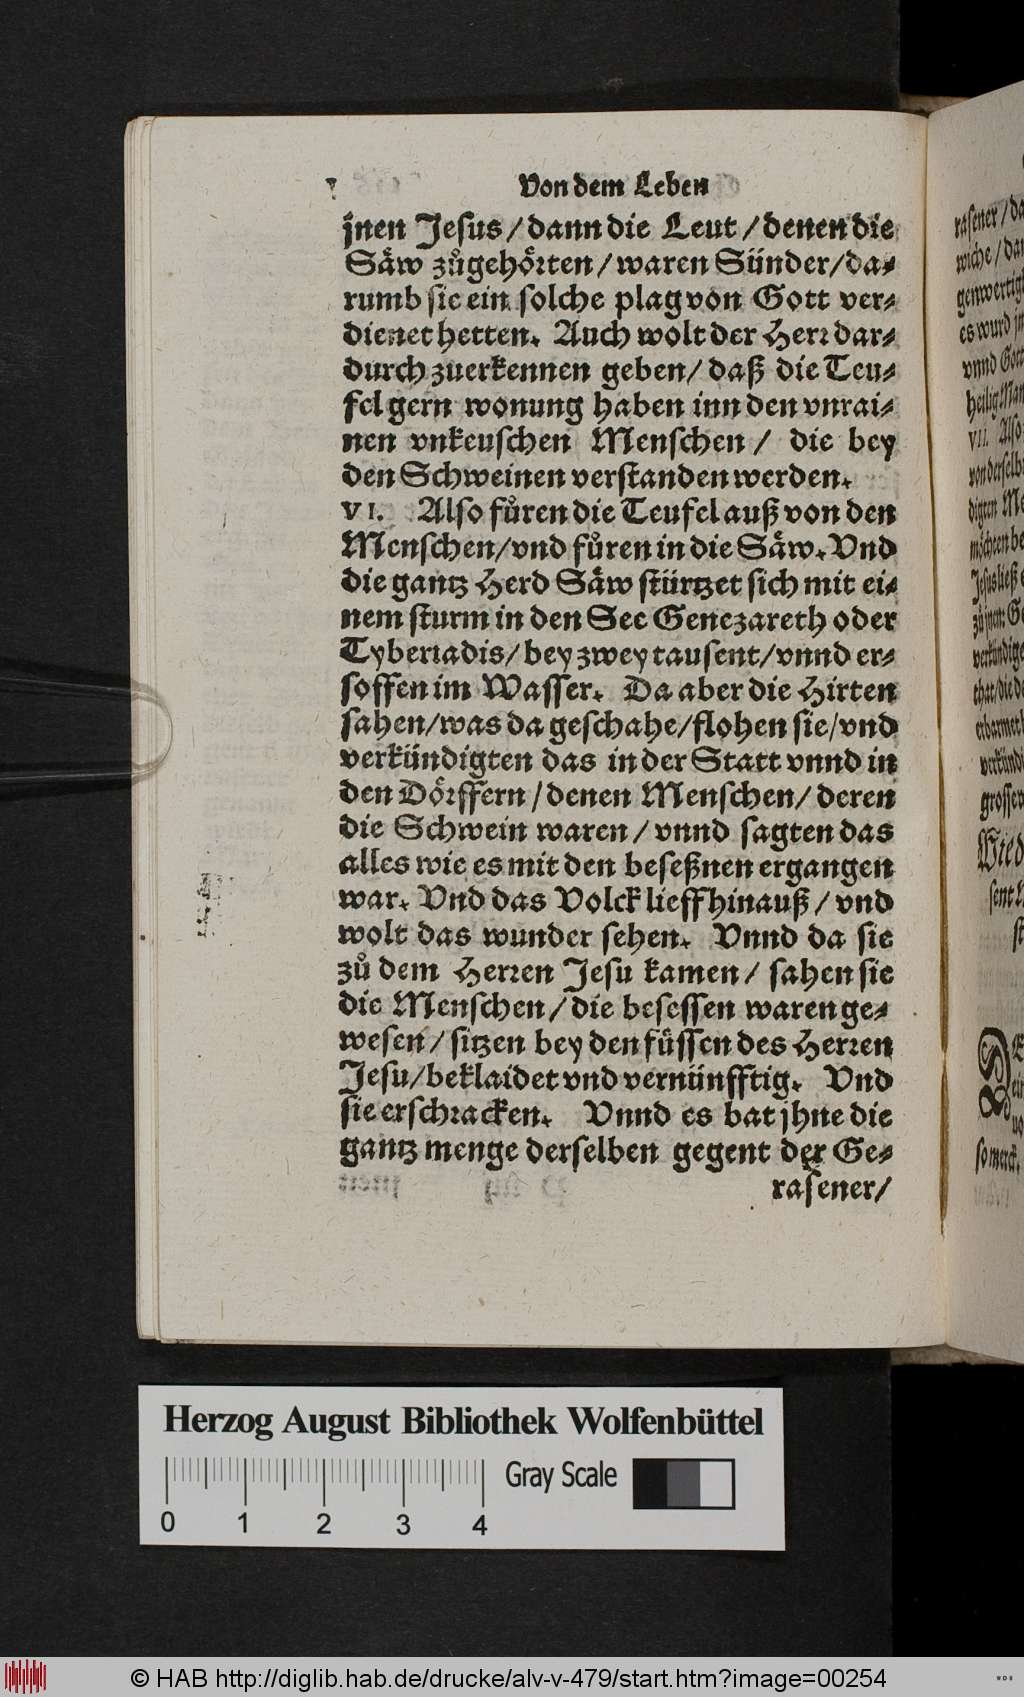 Von dem Leben
jnen Jesus / dann die Leut / denen die
Säw zůgehörten / waren Sünder / da-
rumb sie ein solche plag von Gott ver-
dienet hetten. Auch wolt der Herr dar-
durch zuerkennen geben / daß die Teu-
fel gern wonung haben inn den vnrai-
nen vnkeuschen Menschen / die bey
den Schweinen verstanden werden.
VI. Also fůren die Teufel auß von den
Menschen / vnd fůren in die Säw. Vnd
die gantz Herd Säw stürtzet sich mit ei-
nem sturm in den See Genezareth oder
Tyberiadis / bey zwey tausent / vnnd er-
soffen im Wasser. Da aber die Hirten
sahen / was da geschahe / flohen sie / vnd
verkündigten das in der Statt vnnd in
den Dörffern / denen Menschen / deren
die Schwein waren / vnnd sagten das
alles wie es mit den beseßnen ergangen
war. Vnd das Volck lieff hinauß / vnd
wolt das wunder sehen. Vnnd da sie
zů dem Herren Jesu kamen / sahen sie
die Menschen / die besessen waren ge-
wesen / sitzen bey den füssen des Herren
Jesu / beklaidet vnd vernünfftig. Vnd
sie erschracken. Vnnd es bat jhne die
gantz menge derselben gegent der Ge-
rasener /
rasener / da
wiche / dan
genwertig
es wurd jn
vnnd Gott
heilig Man
VII. Also
von derselb
digten Me
möchten be
Jesus ließ
zů jnen: Ge
verkündige
that / die de
erbarmet
verkündi
grossen
Wie d
sent
so merck
Herzog August Bibliothek Wolfenbüttel
Gray Scale
0 1 2 3 4
© HAB http://diglib.hab.de/drucke/alv-v-479/start.htm?image=00254